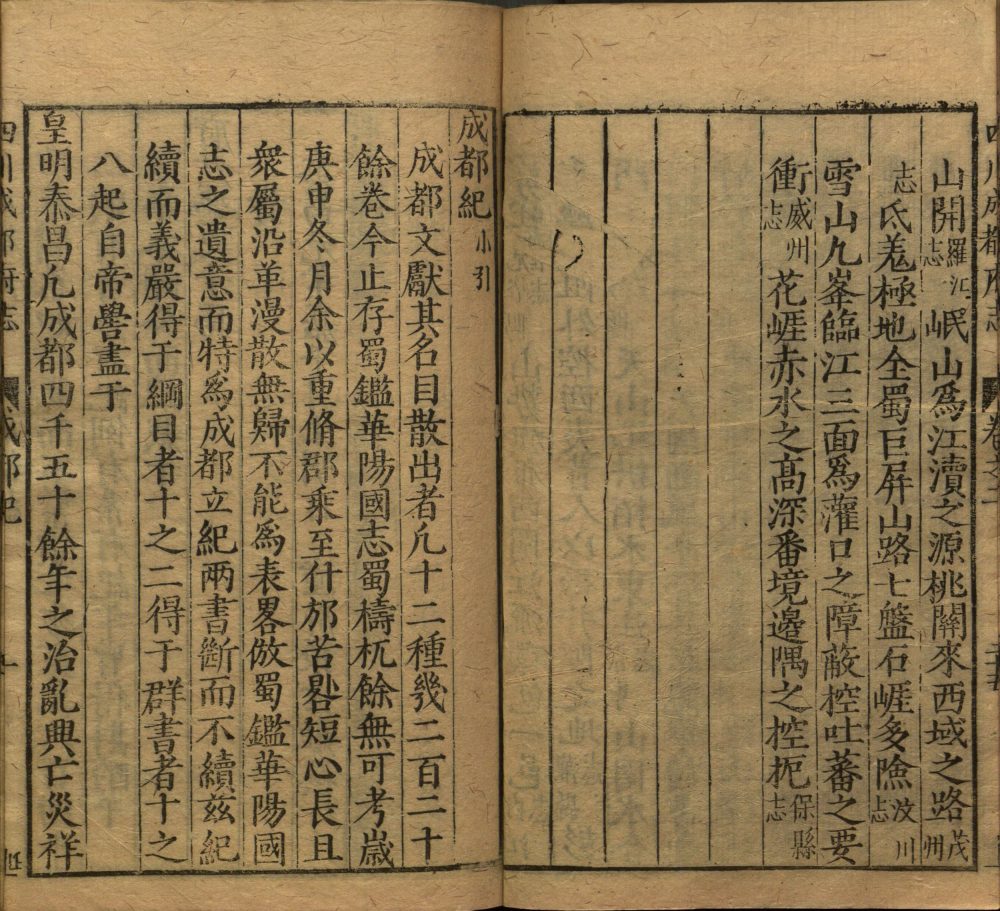 山開羅江志岷山爲江瀆之源桃關來西域之路茂州
志氐羗極地全蜀巨屏山路七盤石崕多險汶川志
雪山九峯臨江三面爲灌口之障蔽控吐蕃之要
衝威州志花崕赤水之髙深番境邊隅之控扼保縣志
成都紀小引
成都文獻其名目散出者凢十二種幾二百二十
餘巻今止存蜀鑑華陽國志蜀檮杌餘無可考嵗
庚申冬月余以重脩郡乗至什邡苦晷短心長且
衆屬沿革漫散無歸不能爲表畧倣蜀鑑華陽國
志之遺意而特爲成都立紀兩書斷而不續兹紀
續而義嚴得于綱目者十之二得于群書者十之
八起自帝嚳盡于
皇明泰昌凢成都四千五十餘年之治亂興亡災祥
四川成都府志
成都紀